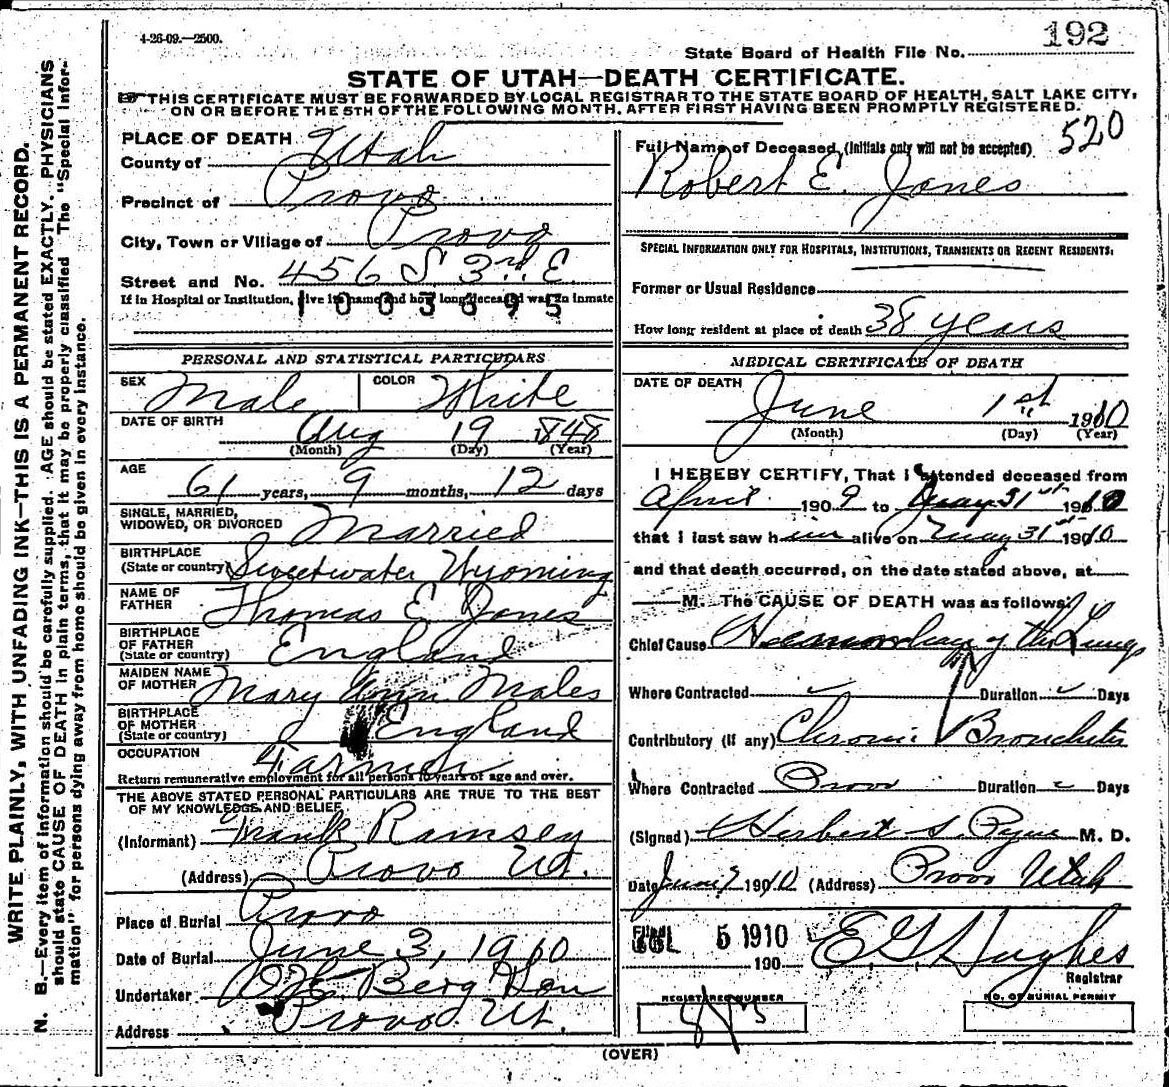 4-26-09.—2500.
192
State Board of Health File No.
STATE OF UTAH—DEATH CERTIFICATE.
THIS CERTIFICATE MUST BE FORWARDED BY LOCAL REGISTRAR TO THE STATE BOARD OF HEALTH, SALT LAKE CITY,
ON OR BEFORE THE 5TH OF THE FOLLOWING MONTH, AFTER FIRST HAVING BEEN PROMPTLY REGISTERED.
WRITE PLAINLY, WITH UNFADING INK—THIS IS A PERMANENT RECORD.
N. B.—Every item of information should be carefully supplied. AGE should be stated EXACTLY. PHYSICIANS
should state CAUSE OF DEATH in plain terms, that it may be properly classified The "Special Infor-
mation" for persons dying away from home should be given in every instance.
PLACE OF DEATH
County of Utah
Precinct of Provo
City, Town or Village of Provo
Street and No. 456 S 3rd E
If in Hospital or Institution, give its name and how long deceased was an inmate
1003695
PERSONAL AND STATISTICAL PARTICULARS
SEX Male COLOR White
DATE OF BIRTH Aug 19 1848
(Month) (Day) (Year)
AGE 61 years, 9 months, 12 days
SINGLE, MARRIED,
WIDOWED, OR DIVORCED Married
BIRTHPLACE
(State or country) Sweetwater Wyoming
NAME OF
FATHER Thomas E Jones
BIRTHPLACE
OF FATHER
(State or country) England
MAIDEN NAME
OF MOTHER Mary Ann Males
BIRTHPLACE
OF MOTHER
(State or country) England
OCCUPATION Farmer
Return remunerative employment for all persons 10 years of age and over.
THE ABOVE STATED PERSONAL PARTICULARS ARE TRUE TO THE BEST
OF MY KNOWLEDGE AND BELIEF
(Informant) Frank Ramsey
(Address) Provo Ut.
Place of Burial Provo
Date of Burial June 3, 1910
Undertaker Berg
Address Provo Ut.
520
Full Name of Deceased (Initials only will not be accepted).
Robert E. Jones
SPECIAL INFORMATION ONLY FOR HOSPITALS, INSTITUTIONS, TRANSIENTS OR RECENT RESIDENTS:
Former or Usual Residence
How long resident at place of death 38 years
MEDICAL CERTIFICATE OF DEATH
DATE OF DEATH June 1st 1910
(Month) (Day) (Year)
I HEREBY CERTIFY, That I attended deceased from
April 1909 to May 31st 1910
that I last saw him alive on May 31st 1910
and that death occurred, on the date stated above, at
M. The CAUSE OF DEATH was as follows:
Chief Cause of the Lungs
Where Contracted Duration Days
Contributory (if any) Chronic Bronchitis
Where Contracted Provo Duration Days
(Signed) Herbert S. Pyne M. D.
Date June 1910 (Address) Provo Utah
5 1910
190
E G Hughes
Registrar
REGISTERED NUMBER
NO. OF BURIAL PERMIT
(OVER)